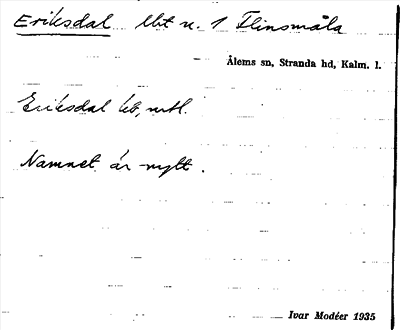 Eriksdal lht u. 1 Flinsmåla
Ålems sn, Stranda hd, Kalm. l.
Eriksdal
Namnet är nytt.
Ivar Modéer 1935